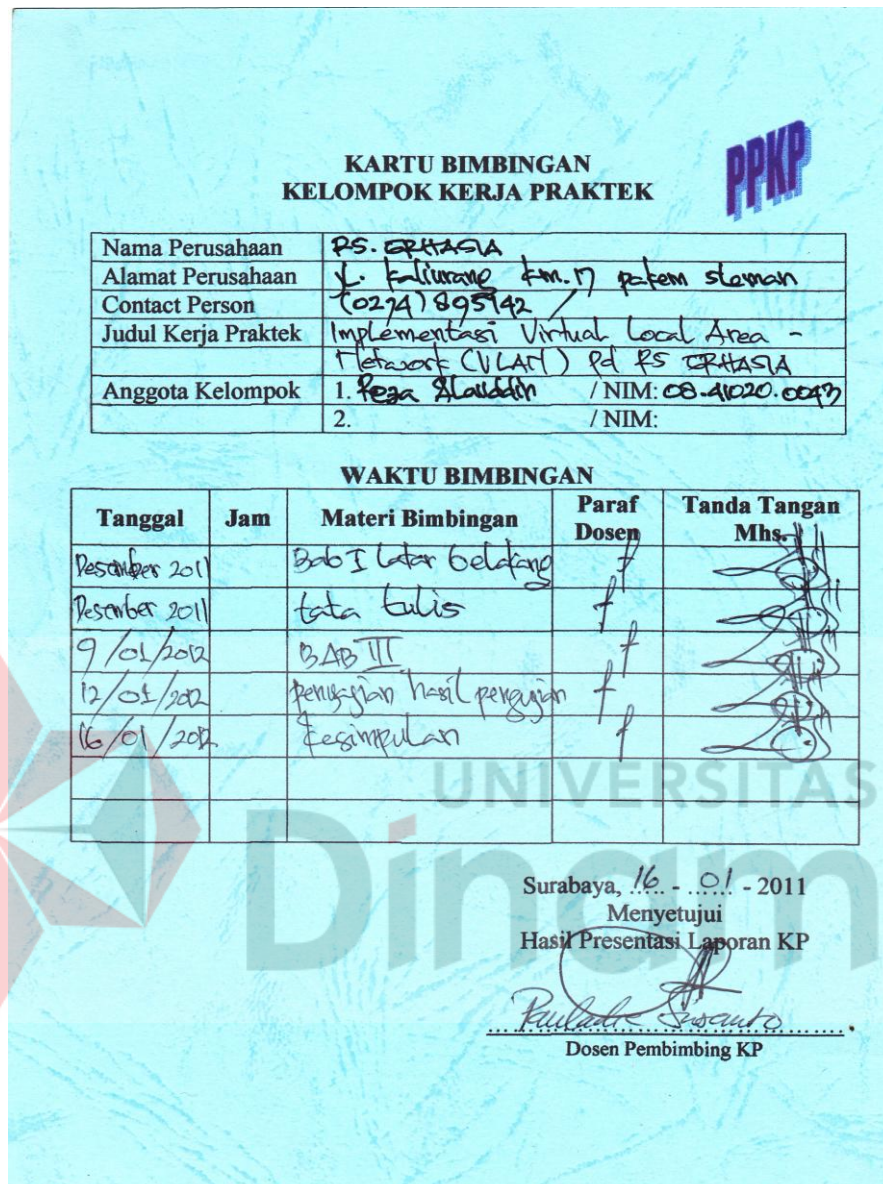 PPKP
KARTU BIMBINGAN
KELOMPOK KERJA PRAKTEK
Nama Perusahaan RS. GRHASIA
Alamat Perusahaan Jl. Kaliurang km. 17 pakem sleman
Contact Person (0274) 895142
Judul Kerja Praktek Implementasi Virtual Local Area -
Network (VLAN) Pd RS GRHASIA
Anggota Kelompok 1. Reza Alauddin / NIM: 08.41020.0043
2. / NIM:
WAKTU BIMBINGAN
Tanggal Jam Materi Bimbingan Paraf Dosen Tanda Tangan Mhs.
Desember 2011 Bab I Latar belakang
Desember 2011 tata tulis
9/01/2012 BAB III
12/01/2012 penyajian hasil pengujian
16/01/2012 kesimpulan
UNIVERSITAS
Dinam
Surabaya, 16 - 01 - 2011
Menyetujui
Hasil Presentasi Laporan KP
Pauladie Susanto
Dosen Pembimbing KP